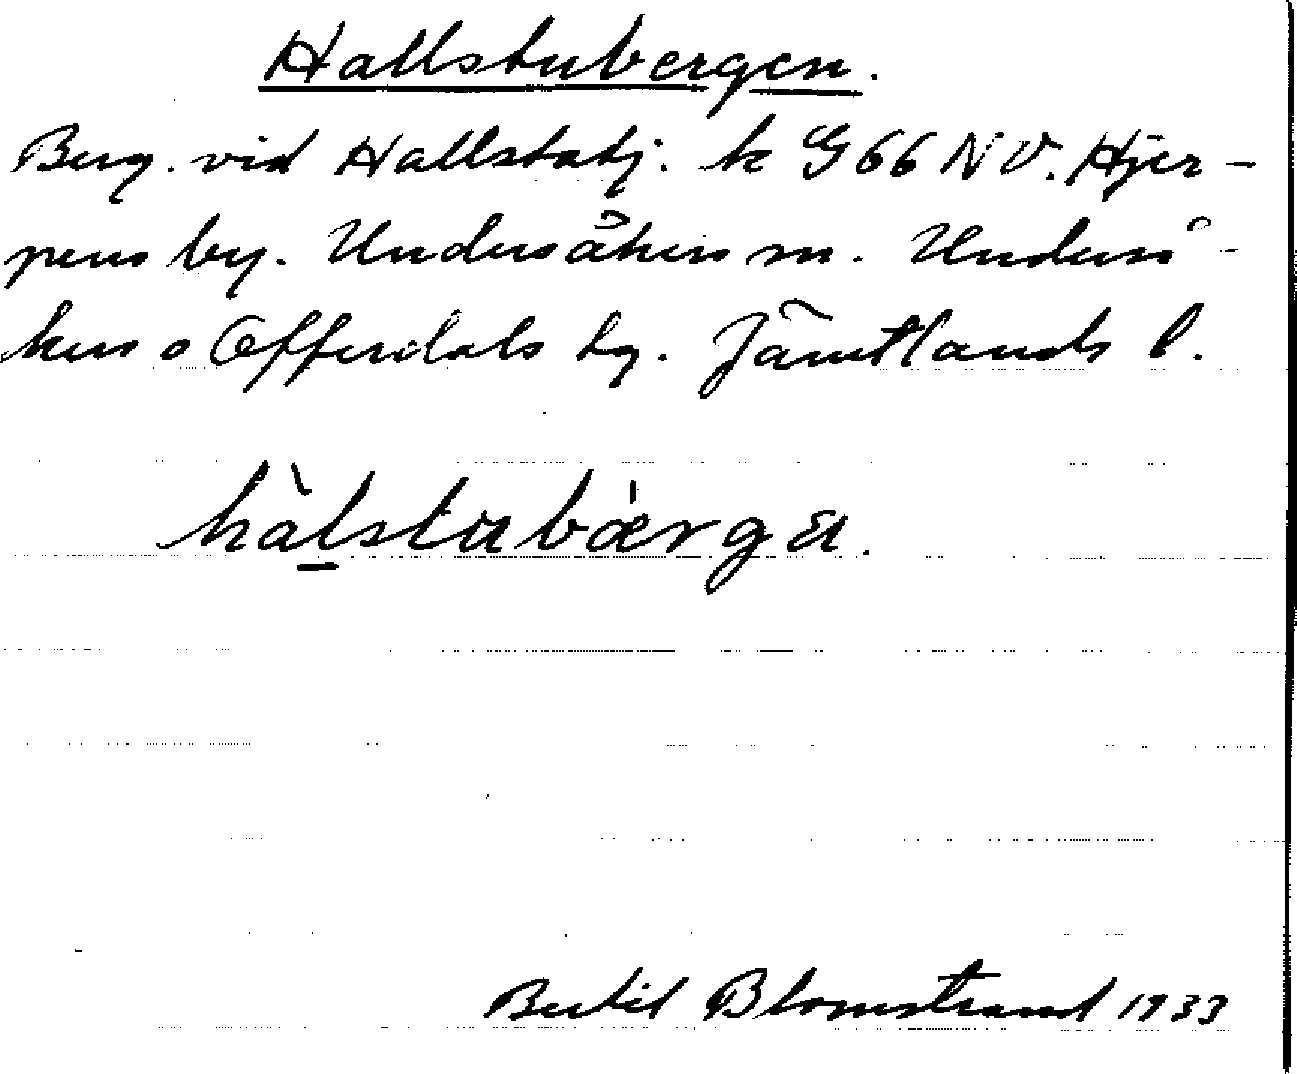 Hallstubergen.
Berg. vid Hallstatj. k G 66 NV. Hjer-
pens by. Undersåkers sn. Underså-
kers o Offerdals tg. Jämtlands l.
hàlstabærga.
Bertil Blomstrand 1933